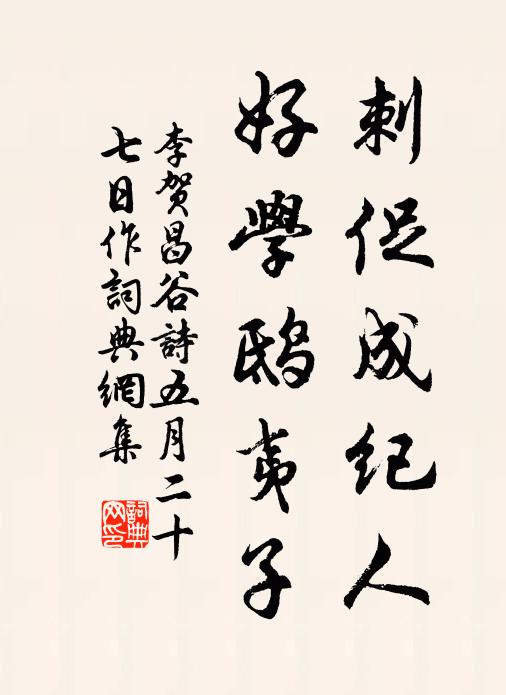 刺促成纪人
好學鸱夷子
李贺昌谷詩五月二十
七日作詞典網集
詞典
网印